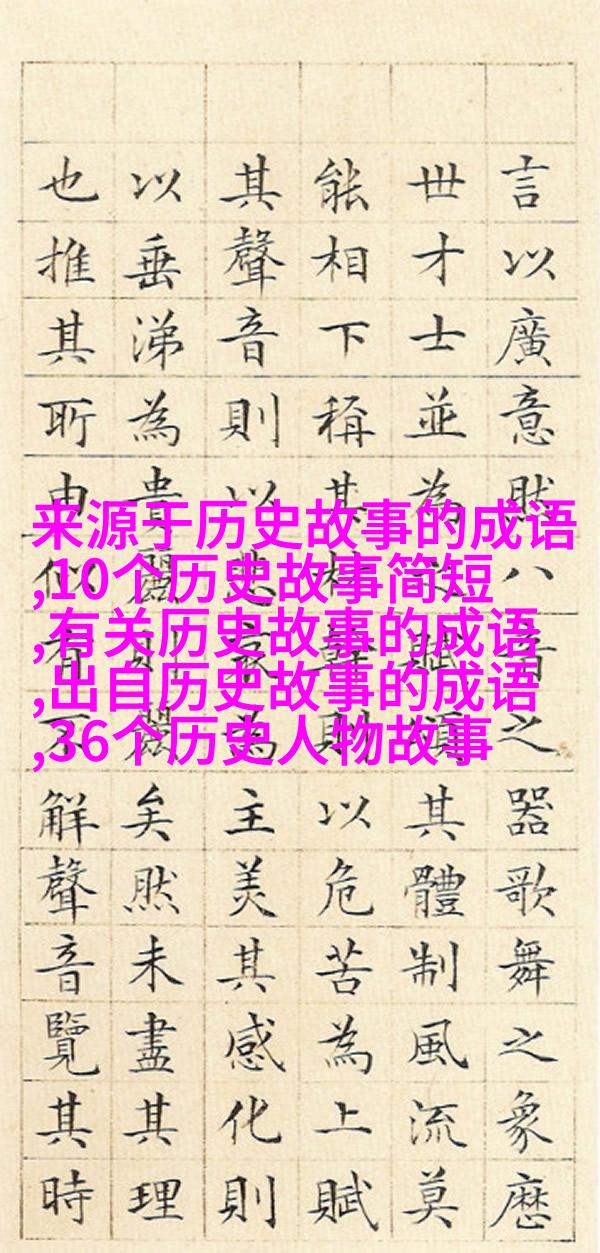 言以廣意然八音之器歌舞之象歷
世才士並為之賦頌其體制風流莫
能相下稱其材幹則以危苦為上賦
其聲音則以悲哀為主美其感化則
以垂涕為貴麗則麗矣然未盡其理
也推其所由似不解聲音覽其時
来源于历史故事的成语
,10个历史故事简短
,有关历史故事的成语
,出自历史故事的成语
,36个历史人物故事